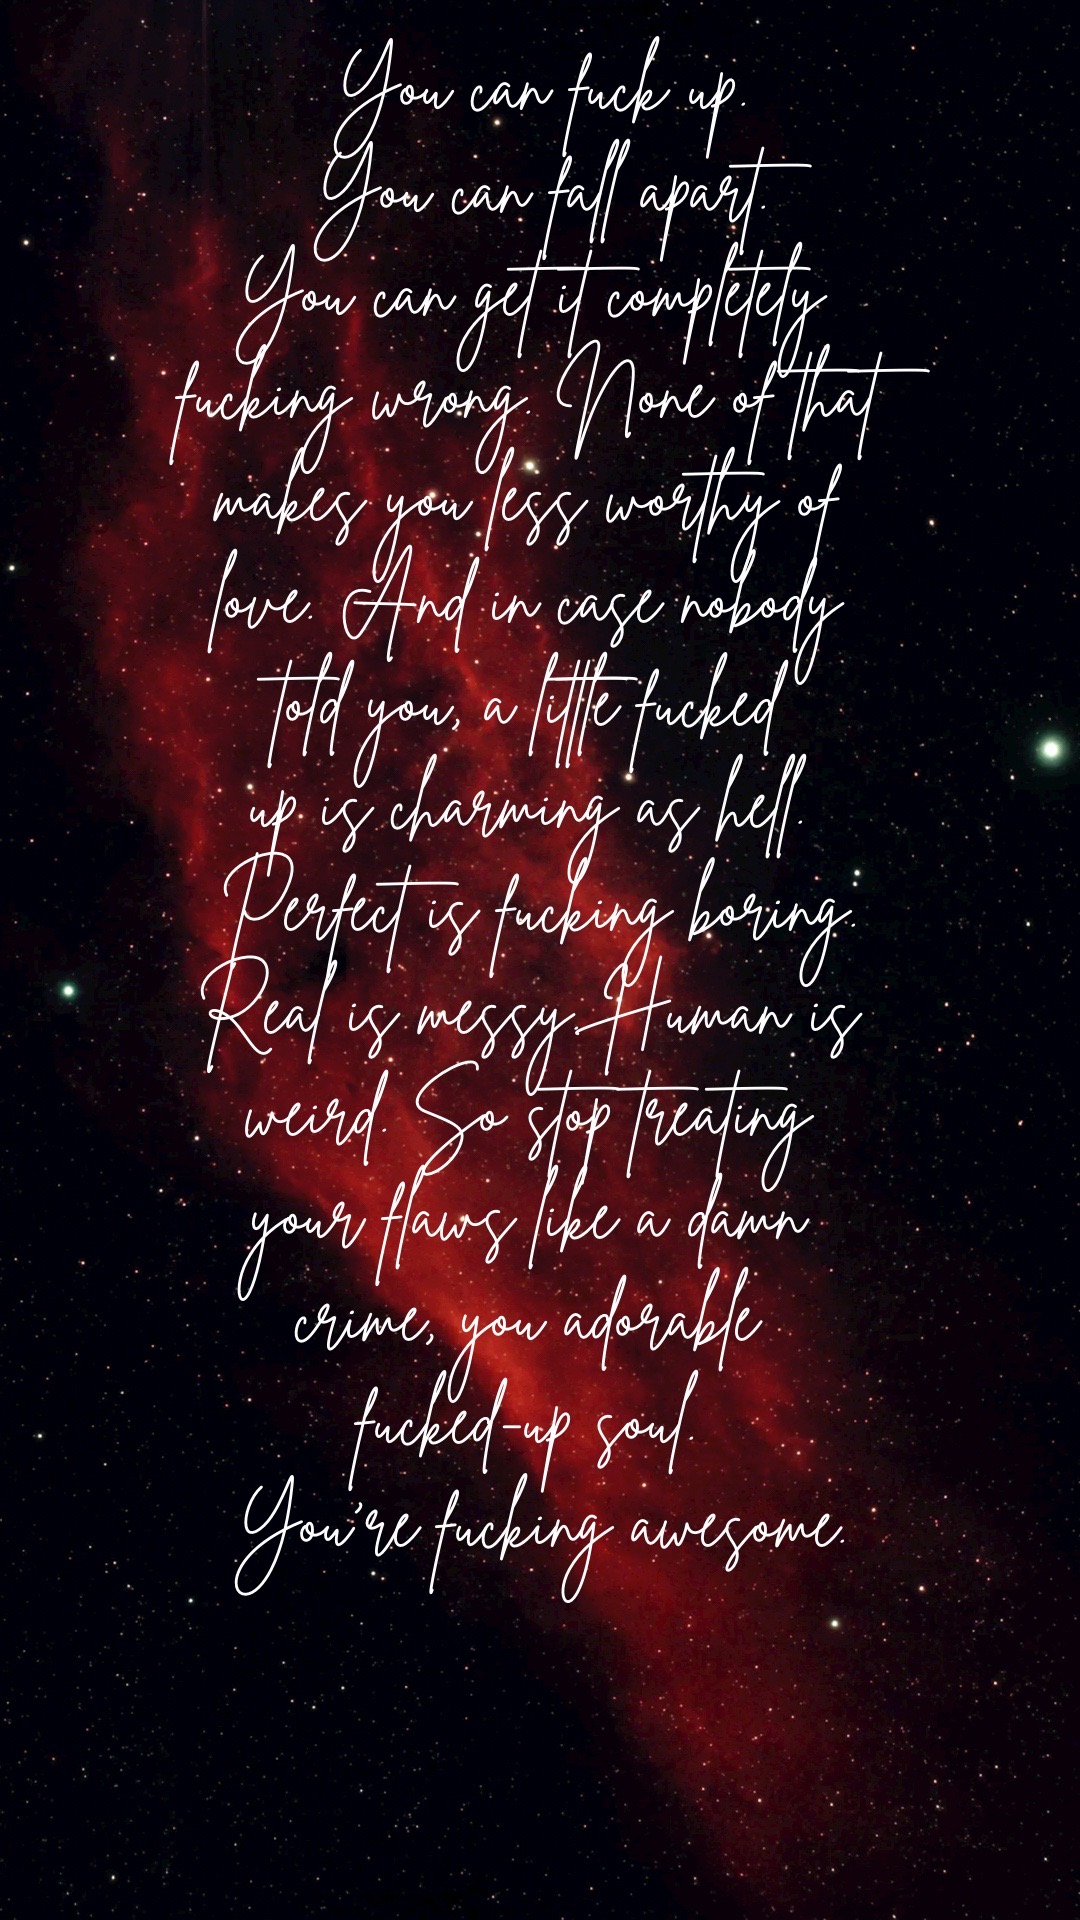 You can fuck up.
You can fall apart.
You can get it completely
fucking wrong. None of that
makes you less worthy of
love. And in case nobody
told you, a little fucked
up is charming as hell.
Perfect is fucking boring.
Real is messy. Human is
weird. So stop treating
your flaws like a damn
crime, you adorable
fucked-up soul.
You're fucking awesome.